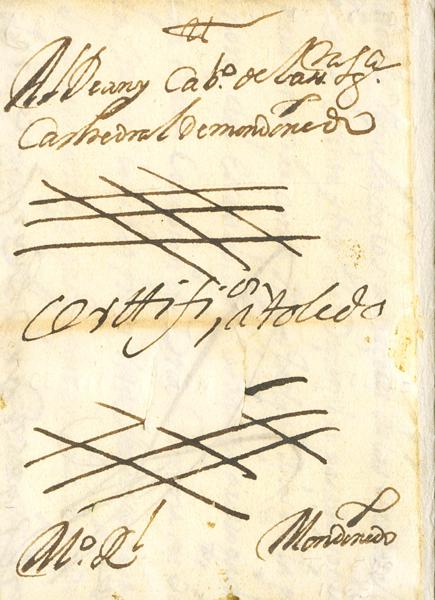 Al Dean y Cabº. de la Sta Yg.ª
Cathedral de mondoñedo
Certtifi.on, a toledo
Mº. Rl
Mondoñedo